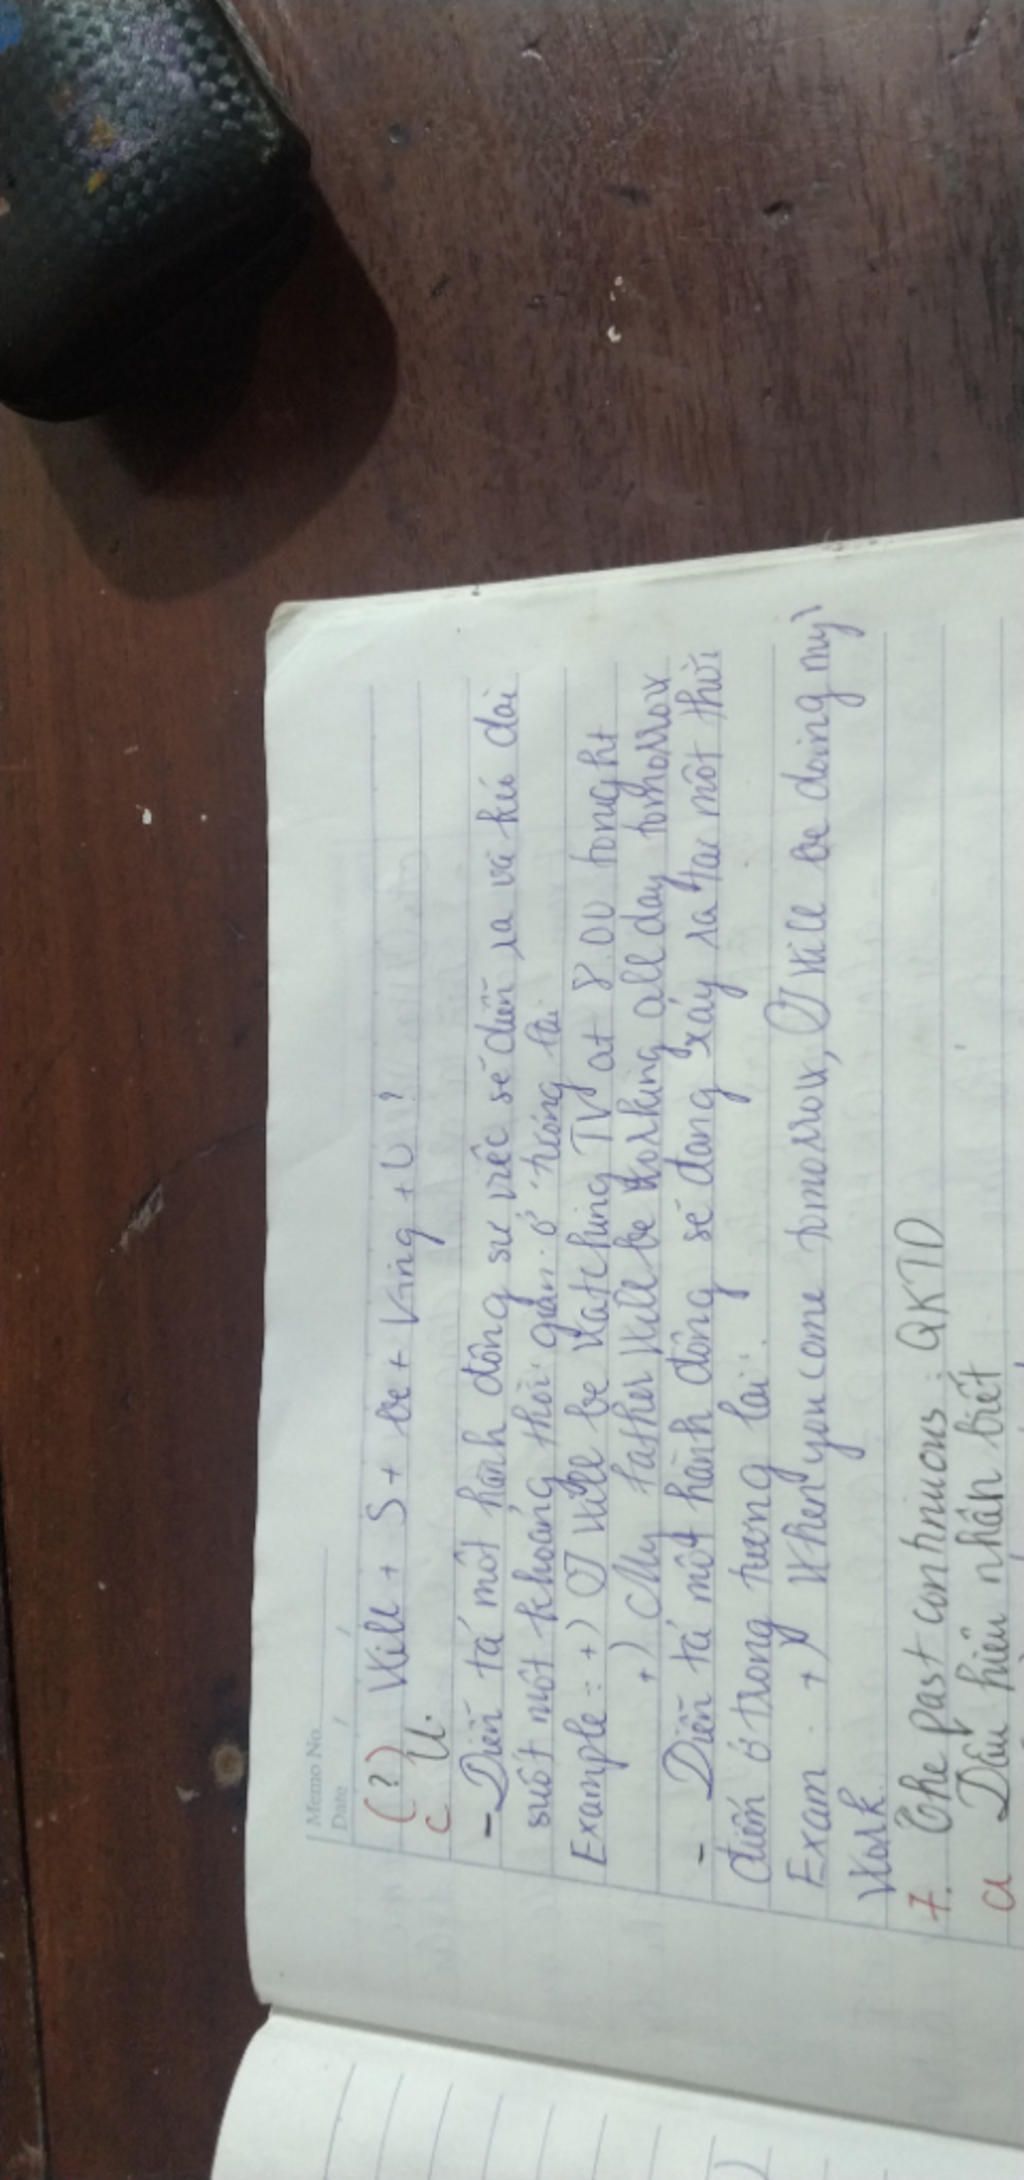 Memo No.
Date / /
(?) Will + S + be + Ving + U ?
c U.
- Diễn tả một hành động sự việc sẽ diễn ra và kéo dài
suốt một khoảng thời gian ở tương lai.
Example : +) I will be watching TV at 8.00 tonight
+) My father will be working all day tomorrow
- Diễn tả một hành động sẽ đang xảy ra tại một thời
điểm ở trong tương lai.
Exam. +) When you come tomorrow, I will be doing my
work.
7. The past continuous : QKTD
a Dấu hiệu nhận biết